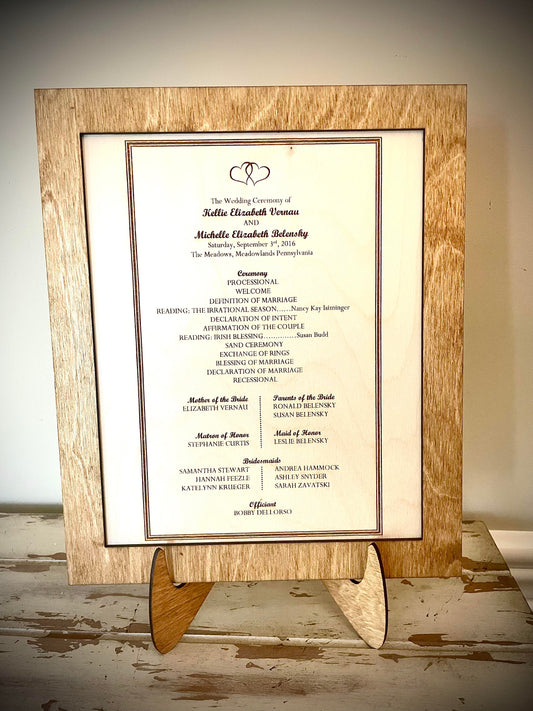 The Wedding Ceremony of
Kellie Elizabeth Vernau
AND
Michelle Elizabeth Belensky
Saturday, September 3rd, 2016
The Meadows, Meadowlands Pennsylvania
Ceremony
PROCESSIONAL
WELCOME
DEFINITION OF MARRIAGE
READING: THE IRRATIONAL SEASON……Nancy Kay Istninger
DECLARATION OF INTENT
AFFIRMATION OF THE COUPLE
READING: IRISH BLESSING…………..Susan Budd
SAND CEREMONY
EXCHANGE OF RINGS
BLESSING OF MARRIAGE
DECLARATION OF MARRIAGE
RECESSIONAL
Mother of the Bride
ELIZABETH VERNAU
Parents of the Bride
RONALD BELENSKY
SUSAN BELENSKY
Matron of Honor
STEPHANIE CURTIS
Maid of Honor
LESLIE BELENSKY
Bridesmaids
SAMANTHA STEWART
HANNAH FEEZLE
KATELYNN KRUEGER
ANDREA HAMMOCK
ASHLEY SNYDER
SARAH ZAVATSKI
Officiant
BOBBY DELL ORSO